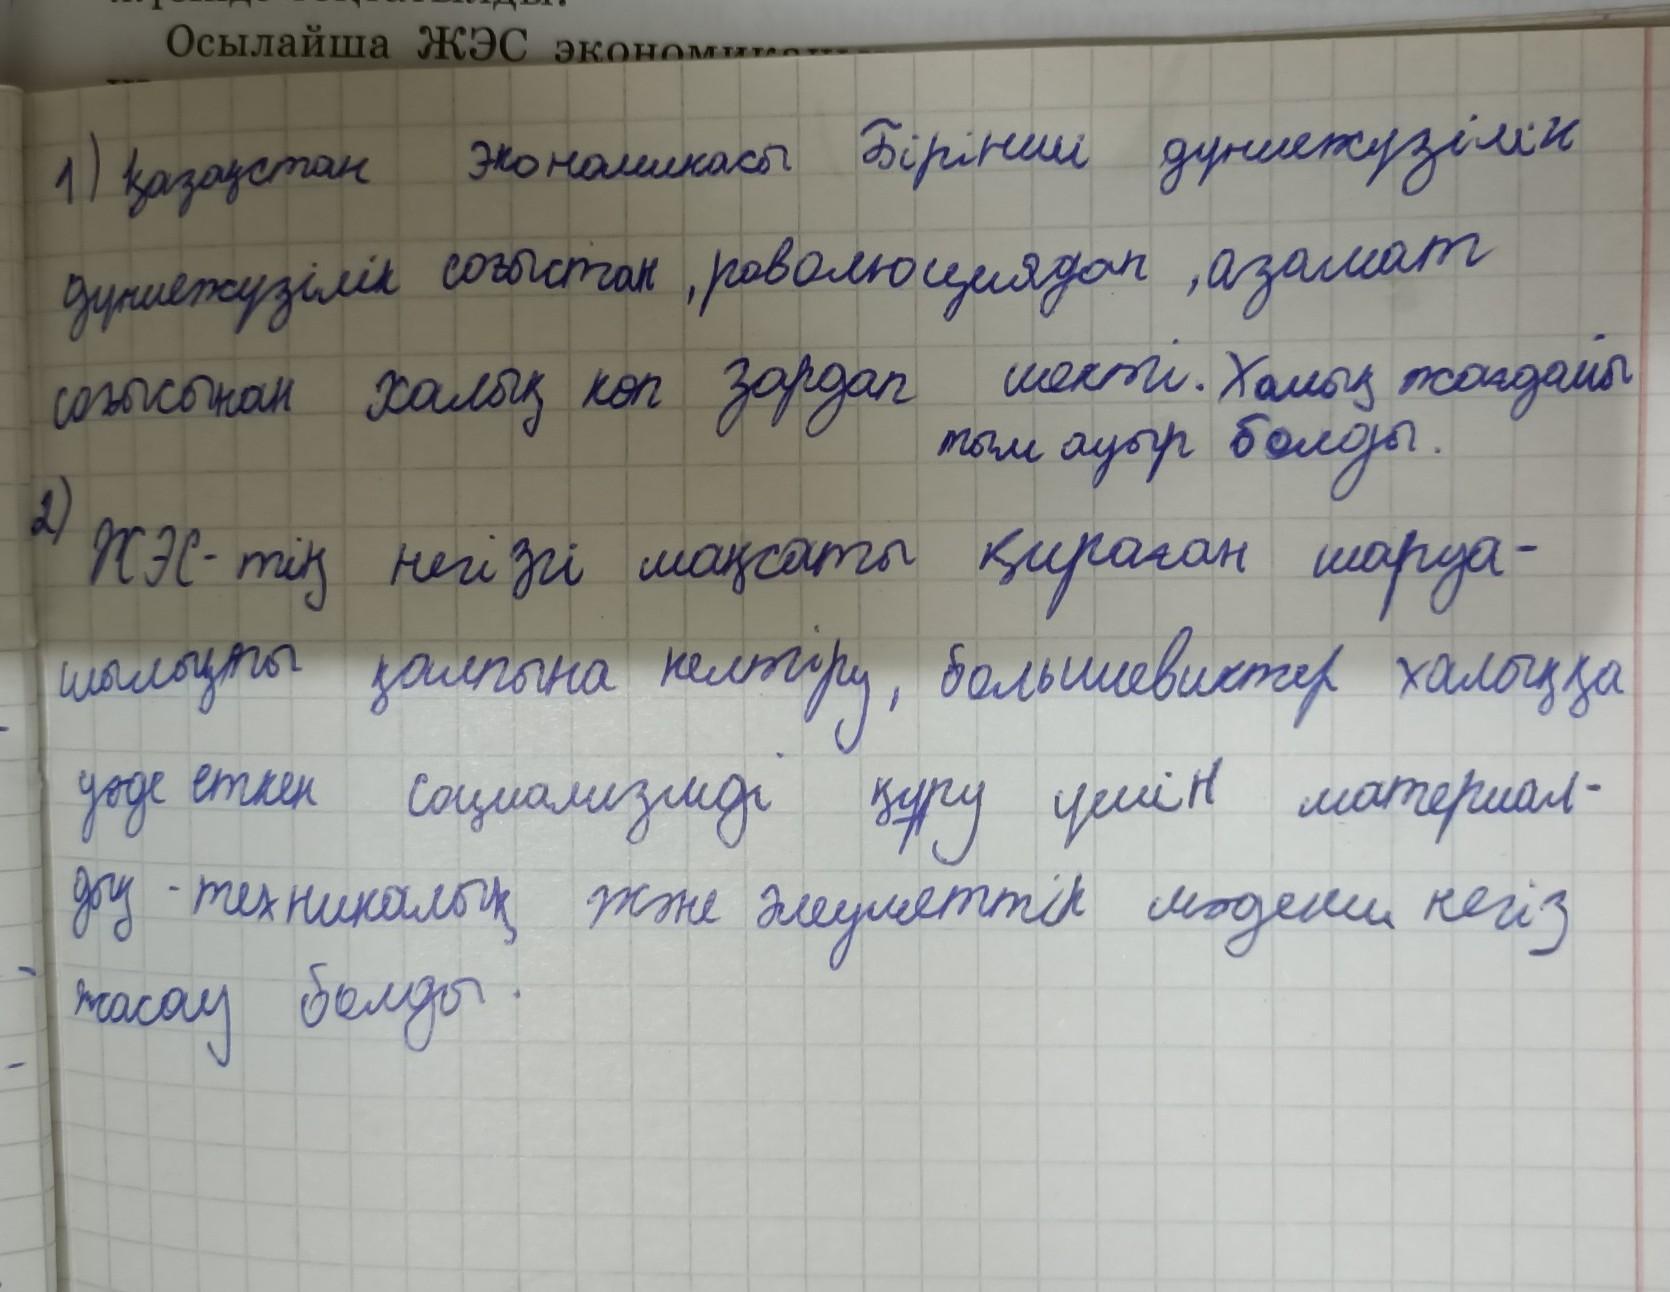 Осылайша ЖЭС экономиканың
1) Қазақстан экономикасы Бірінші дүниежүзілік
дүниежүзілік соғыстан, революциядан, азамат
соғысынан халық көп зардап шекті. Халық жағдайы
тым ауыр болды.
2) ЖЭС-тің негізгі мақсаты қираған шаруа-
шылықты қалпына келтіру, большевиктер халыққа
уәде еткен социализмді құру үшін материал-
дық-техникалық және әлеуметтік мәдени негіз
жасау болды.